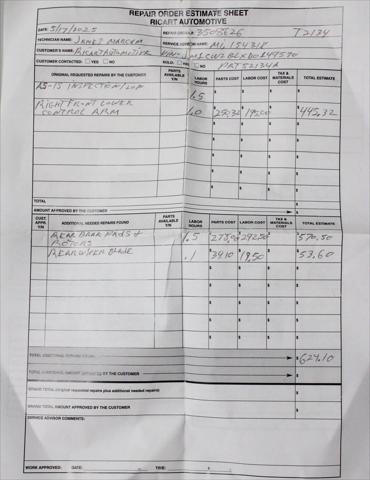 REPAIR ORDER ESTIMATE SHEET
RICART AUTOMOTIVE
DATE: 5/17/2025 REPAIR ORDER # 3503626 T2134
TECHNICIAN NAME: JAMES
CUSTOMER'S NAME: RICART AUTOMOTIVE
CUSTOMER CONTACTED: YES NO SOLD: YES NO
ORIGINAL REQUESTED REPAIRS BY THE CUSTOMER PARTS AVAILABLE Y/N LABOR HOURS PARTS COST LABOR COST TAX & MATERIALS COST TOTAL ESTIMATE
AS-IS INSPECTION 1.5 $ $ $ $
RIGHT FRONT LOWER
CONTROL ARM 1.0 $ 195.00 $ 445.32
TOTAL
AMOUNT APPROVED BY THE CUSTOMER $
CUST. APPR. Y/N ADDITIONAL NEEDED REPAIRS FOUND PARTS AVAILABLE Y/N LABOR HOURS PARTS COST LABOR COST TAX & MATERIALS COST TOTAL ESTIMATE
REAR BRAK PADS &
ROTORS 1.5 $ 292.50 $ 570.50
REAR WIPER BLADE .1 34.10 19.50 $ 53.60
TOTAL ADDITIONAL REPAIRS FOUND $ 624.10
TOTAL ADDITIONAL AMOUNT APPROVED BY THE CUSTOMER $
GRAND TOTAL (original requested repairs plus additional needed repairs) $
GRAND TOTAL AMOUNT APPROVED BY THE CUSTOMER $
SERVICE ADVISOR COMMENTS:
WORK APPROVED: DATE: TIME: $